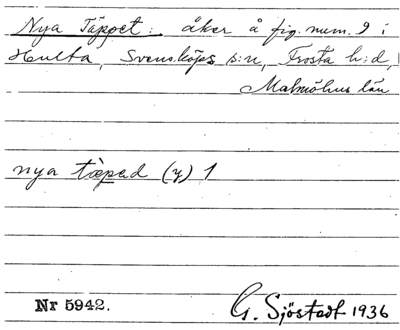 Nya Täppet: åker å fig. num. 9 i
Hulta, Svensköps s:n, Frosta h:d,
Malmöhus län
nya tæpəd (y) 1
Nr 5942.
G. Sjöstedt 1936